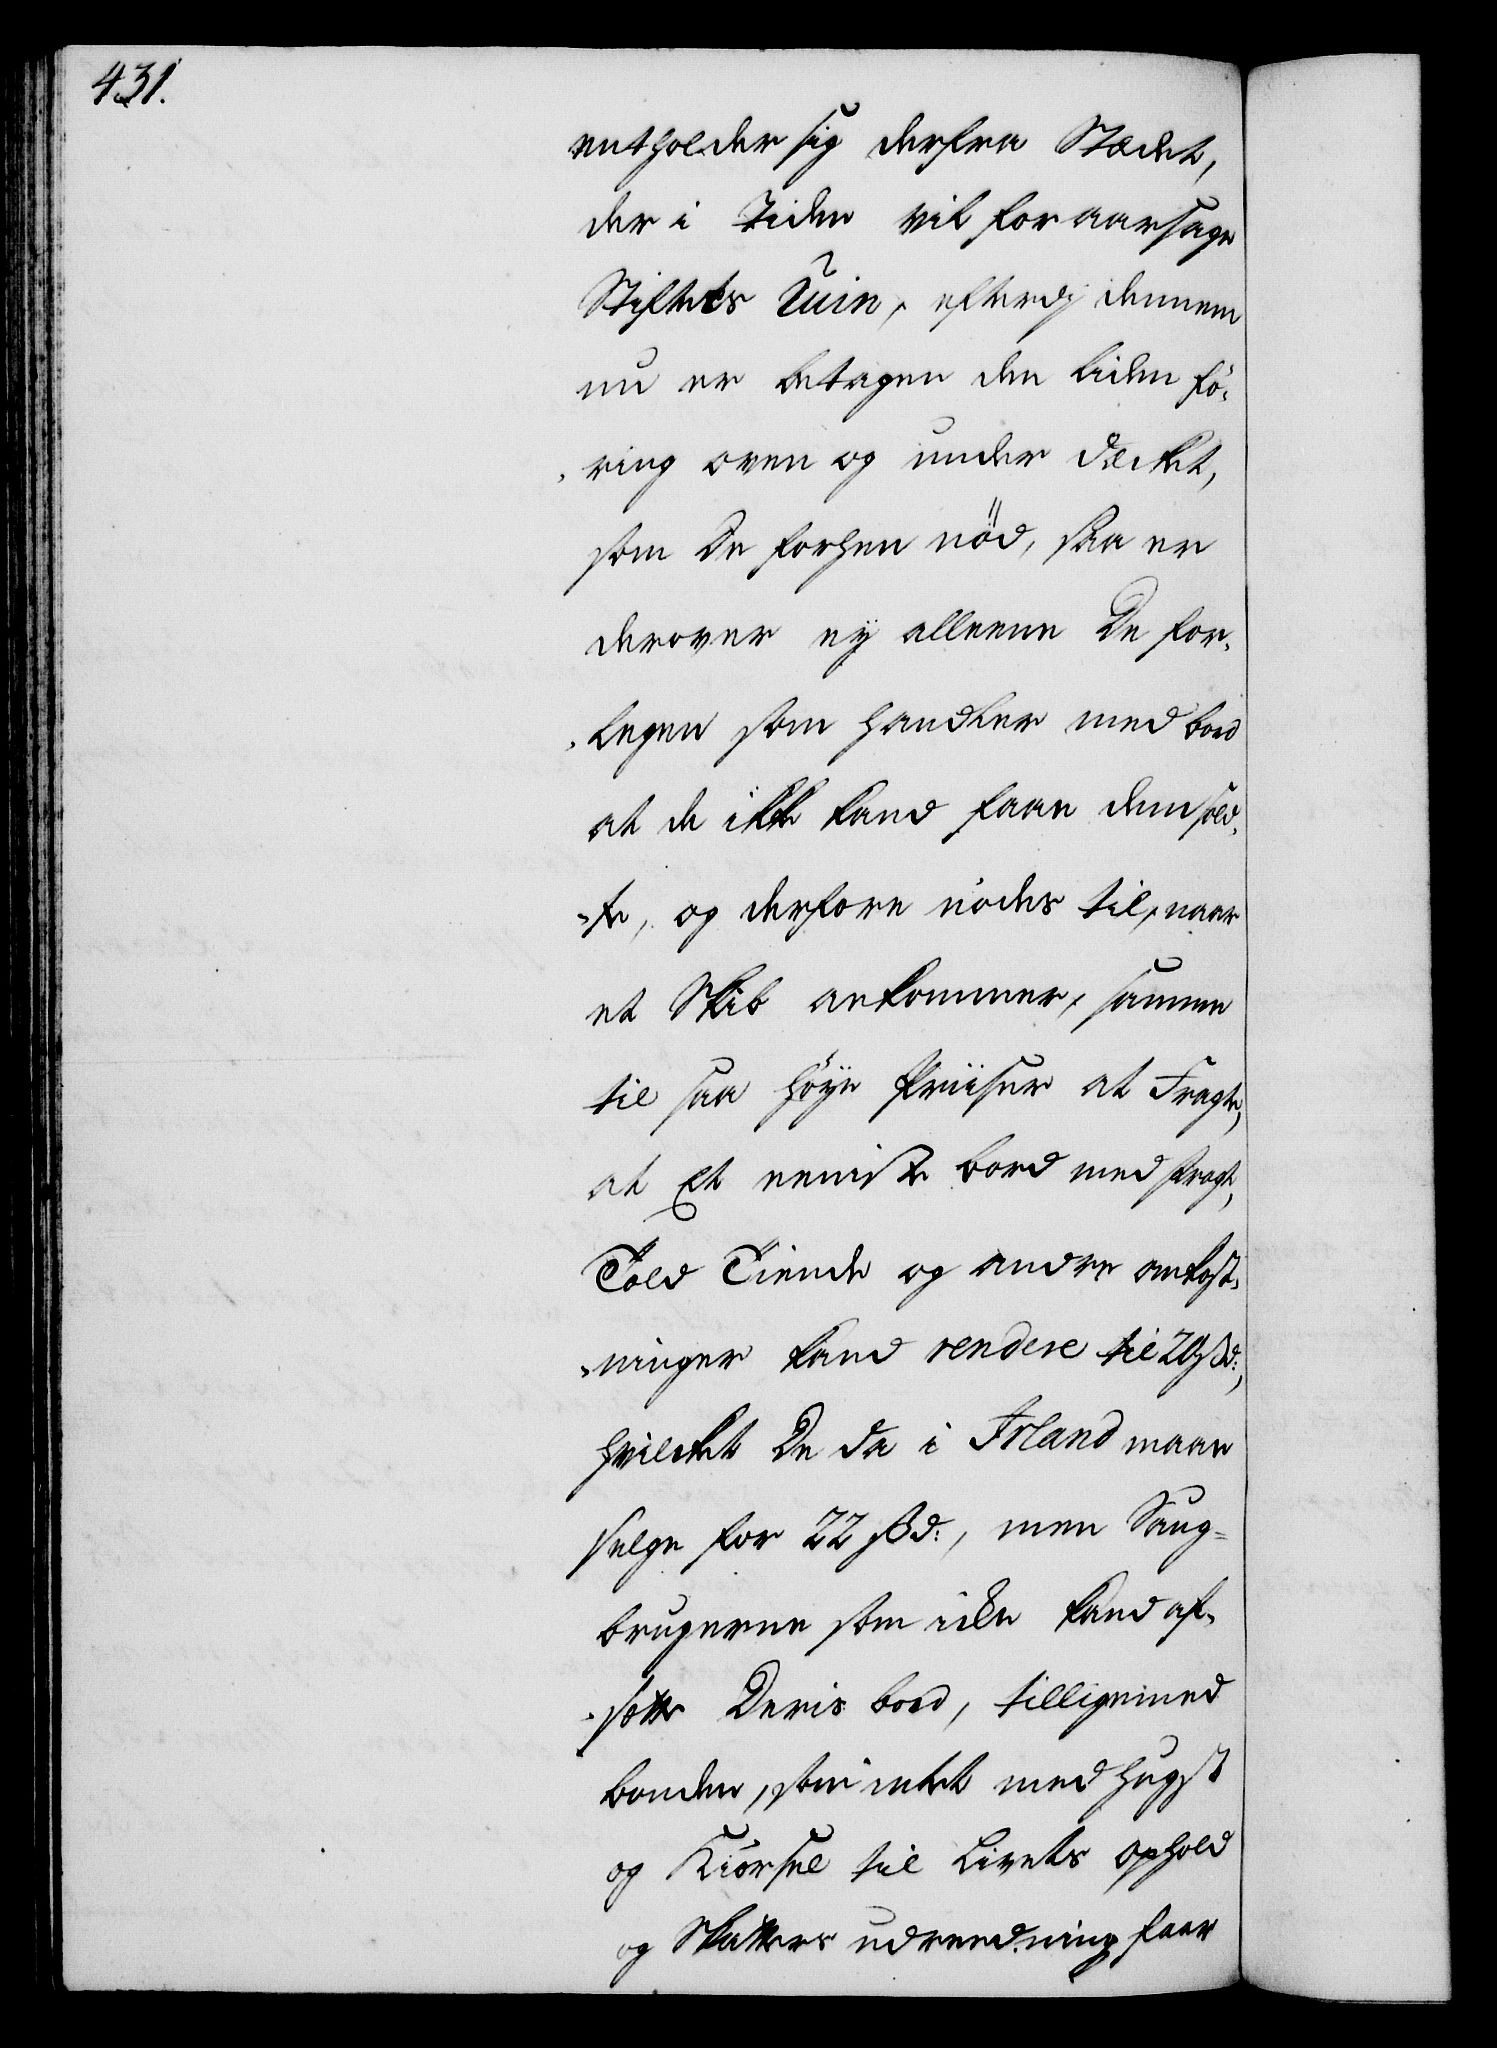 431.
entholder sig derfra Stædet,
der i Tiden vil foraarsage
Stiftets Ruin, efterdj dennem
nu er betagen den liden fö¬
ring oven og under Dæcket,
som De forhen nöd, saa er
derover ey alleene De for¬
legen som handler med bord
at de ikke kand faae dem sold¬
te, og derfore nödes til, naar
et Skib ankommer, samme
til saa höye Priiser at Fragte,
at Et eeniste bord med fragt,
Told Tiende og andre omkost¬
ninger kand rendere til 20 ßd:,
hvilcket De da i Irland maae
selge for 22 ßd:, men Saug¬
brugerne som icke kand af¬
sætte Deris bord, tilligemed
bonden, som intet med hugst
og Kiörsel til Livets ophold
og Skatters udreedning faar